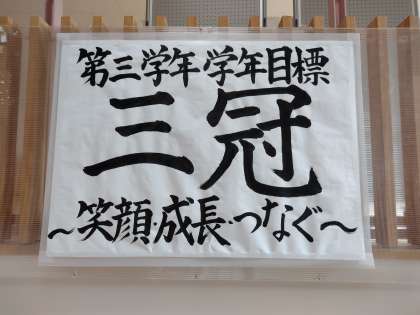 第三学年 学年目標
三冠
～笑顔・成長・つなぐ～